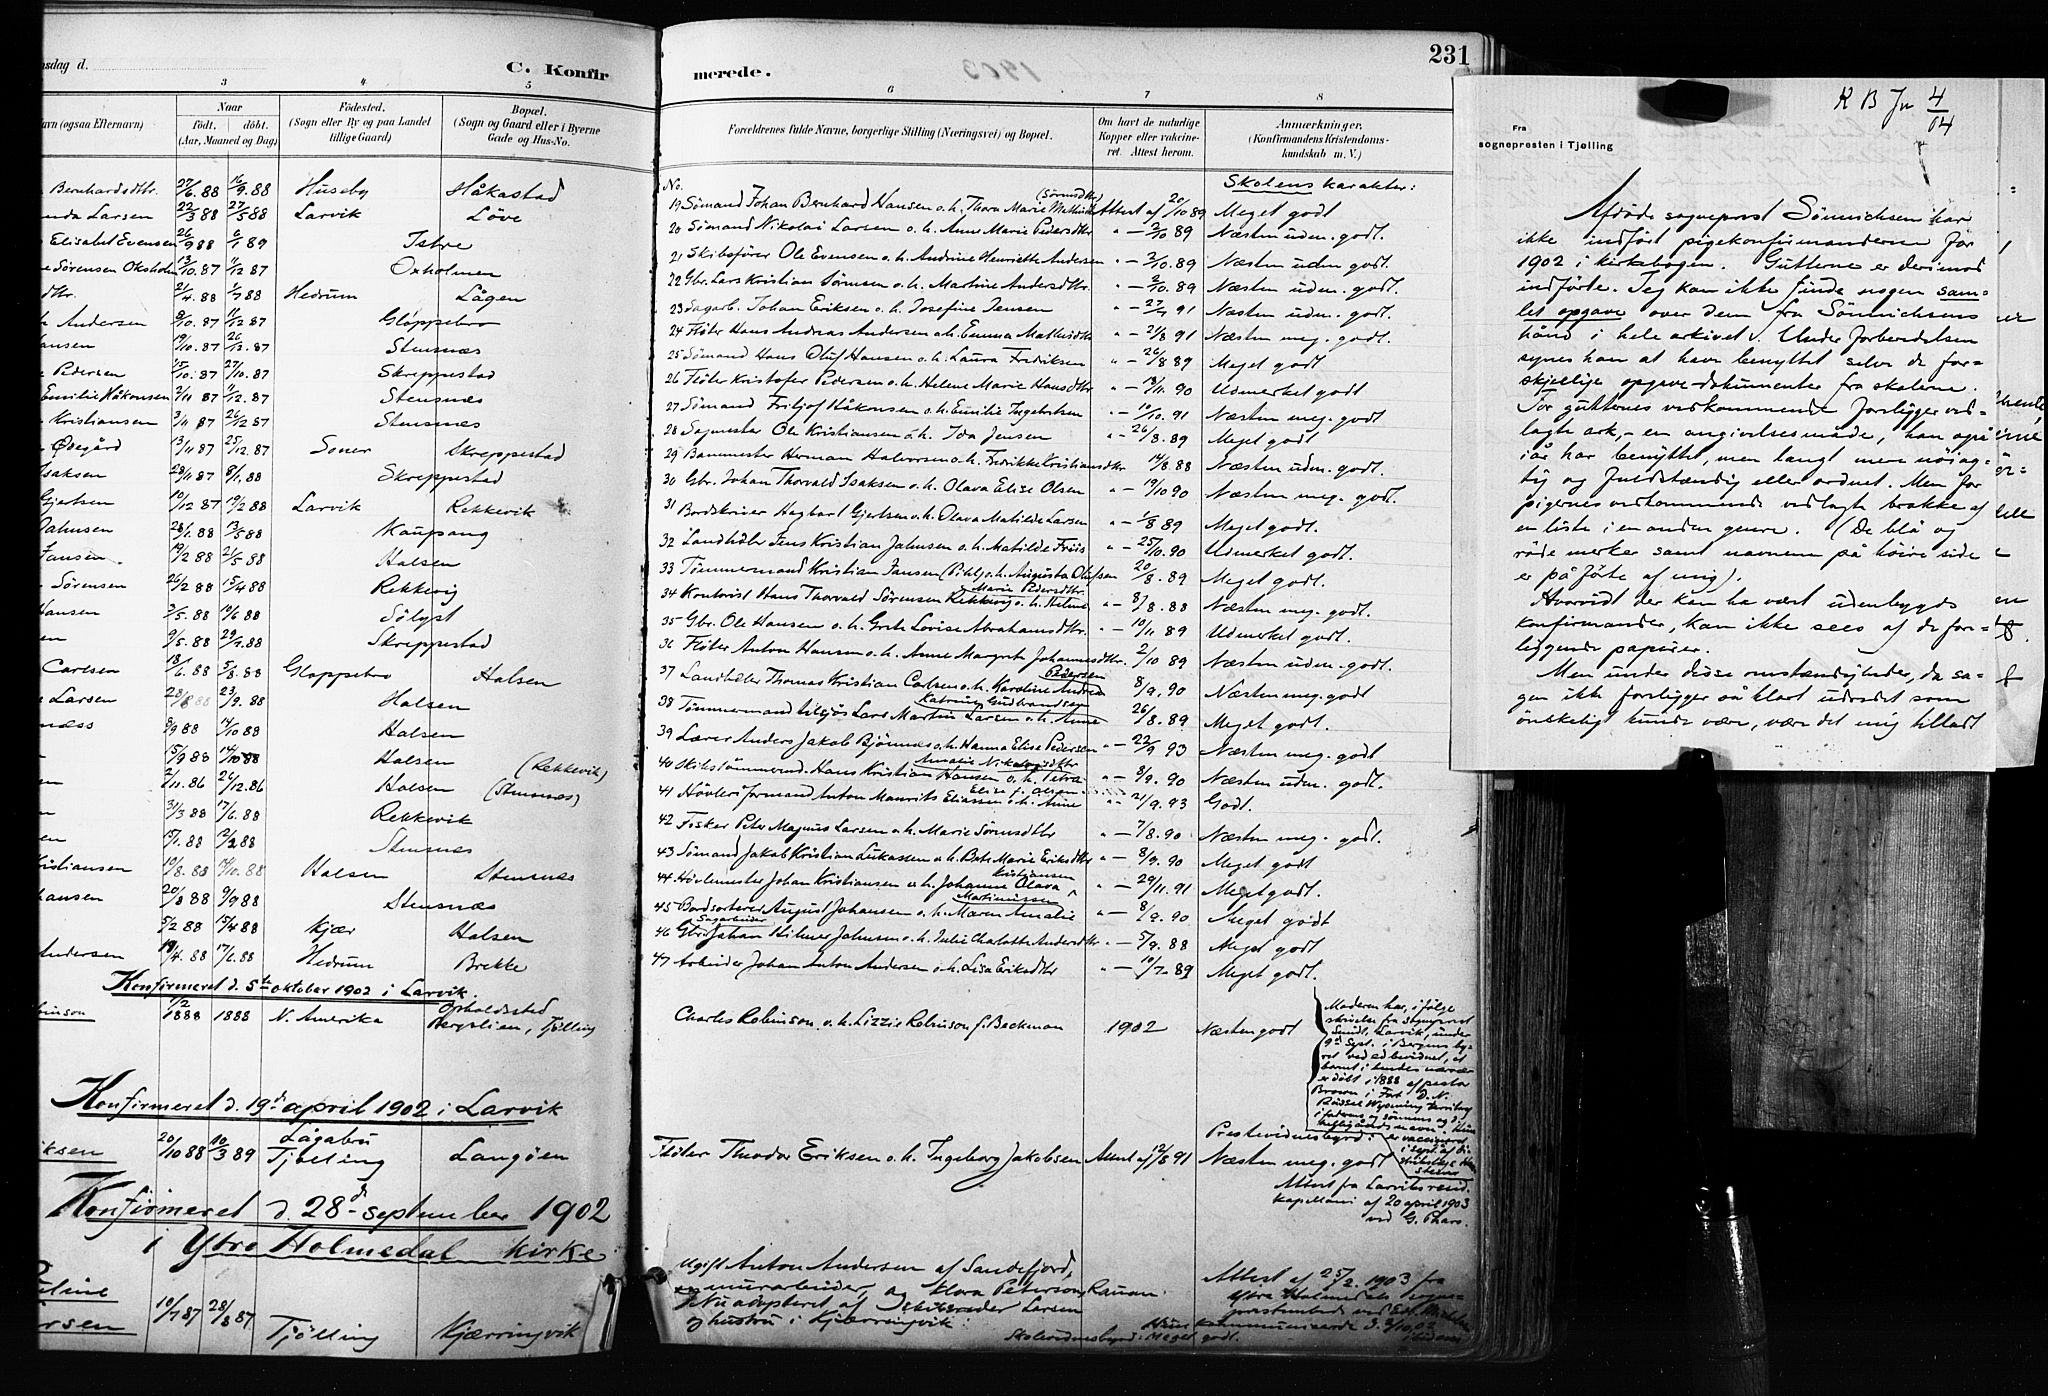 231
nsdag d.
C. Konfir
merede.
3 4 5 6 7 8
avn (ogsaa Efternavn)
Naar
Födt. döbt.
(Aar, Maaned og Dag)
Födested.
(Sogn eller By og paa Landet
tillige Gaard)
Bopæl.
(Sogn og Gaard eller i Byerne
Gade og Hus-No.
Forældrenes fulde Navne, borgerlige Stilling (Næringsvei) og Bopæl.
Om havt de naturlige
Kopper eller vaccine-
ret. Attest herom.
Anmærkninger.
(Konfirmandens Kristendoms-
kundskab m. V.)
Bernhardsdtr. 27/6 88 16/9 88 Huseby Håkastad
nda Larsen 22/3 88 27/5 88 Larvik Löve
Elisabet Evensen 26/9 88 6/1 89 Istre
Sörensen Oksholm 13/10 87 11/12 87 Oxholmen
dtr. 21/4 88 1/7 88 Hedrum Lågen
Andersen 8/10 87 11/12 87 Gloppebro
ansen 19/10 87 26/12 87 Stensnæs
Pedersen 15/10 87 27/10 87 Skreppestad
Emilie Håkonsen 2/11 87 11/12 87 Stensnæs
Kristiansen 3/11 87 26/12 87 Stensnæs
Ödegård 13/11 87 25/12 87 Soner Skreppestad
Isaksen 28/11 87 8/1 88 Skreppestad
Gjertsen 10/12 87 19/2 88 Larvik Rekkevik
Jahnsen 28/1 88 13/5 88 Kaupang
Jansen 19/2 88 21/5 88 Halsen
Sörensen 26/2 88 15/4 88 Rekkevig
Hansen 3/5 88 10/6 88 Sölyst
en 9/5 88 Skreppestad
Carlsen 18/6 88 5/8 88 Gloppebro Halsen
Larsen 23/9 88 Halsen
næss 8/9 88 14/10 88 Halsen
15/9 88 14/10 88 Halsen (Rekkevik)
en 2/11 86 26/12 86 Halsen (Stensnæs)
n 31/3 88 17/6 88 Rekkevik
en 15/1 88 Stensnæs
Kristiansen 19/8 88 14/10 88 Halsen Stensnæs
hansen 20/8 88 9/9 88 Stensnæs
5/2 88 15/4 88 Kjær Halsen
Andersen 19/4 88 17/6 88 Hedrum Brekke
Konfirmeret d. 5te oktober 1902 i Larvik.
binson 1/2 1888 1888 N. Amerika Opholdssted
Bergslien, Tjölling
Konfirmeret d. 19de april 1902 i Larvik
iksen 20/10 88 10/3 89 Lågabru Tjölling Langöen
Konfirmeret d. 28de september 1902
i Ytre Holmedal kirke
line
rsen 10/7 87 28/8 87 Tjölling Kjærringvik
No. Skolens karakter:
19 Sömand Johan Bernhard Hansen o.h. Thora Marie Mathilde (Sörensdtr) Attest af 20/10 89 Meget godt
20 Sömand Nikolai Larsen o.h. Anne Marie Pedersdtr " — 2/10 89 Næsten uden. godt.
21 Skibsförer Ole Evensen o.h. Andrine Henriette Andersen " — 3/10. 89 Næsten uden godt.
22 Gbr. Lars Kristian Sörensen o.h. Martine Andersdtr. " — 2/10. 89 Næsten uden. godt.
23 Sagarb. Johan Eriksen o.h. Josefine Jensen " — 91 Næsten uden. godt.
24 Flöter Hans Andreas Andersen o.h. Emma Mathisdtr " — 21/8 91 Næsten meg. godt.
25 Sömand Hans Oluf Hansen o.h. Laura Fredriksen " — 26/8 89 Meget godt
26 Flöter Kristofer Pedersen o.h. Helene Marie Hansdtr " — 13/11. 90 Udmerket godt
27 Sömand Fritjof Håkonsen o.h. Emilie Ingebretsen " — 10/10. 91 Næsten meg. godt
28 Sagmester Ole Kristiansen o.h. Ida Jensen " — 26/8. 89 Meget godt
29 Banemester Herman Halvorsen o.h. Fredrikke Kristiansdtr 14/8 88 Næsten uden. godt.
30 Gbr. Johan Thorvald Isaksen o.h. Olava Elise Olsen " — 19/10 90 Næsten meg. godt.
31 Bordskriver Hagbart Gjertsen o.h. Olava Matilde Larsen " — 1/8 89 Meget godt.
32 Landhdlr Jens Kristian Jahnsen o.h. Matilde Friis " — 25/10. 90 Udmerket godt.
33 Tömmermand Kristian Jansen (Pihl) o.h. Augusta Olufsen 20/8. 89 Meget godt.
34 Kontorist Hans Thorvald Sörensen Rekkevig o.h. Helene Marie Pedersdtr. " — 8/8. 88 Næsten meg. godt.
35 Gbr. Ole Hansen o.h. Grete Lovise Abrahamsdtr. " — 10/11 89 Udmerket godt.
36 Flöter Anton Hansen o.h. Anne Margrete Johannesdtr. " — 2/10 89 Næsten uden. godt.
37 Landhdlr Thomas Kristian Carlsen o.h. Karoline Andrea Pedersen 8/9. 90 Næsten meg. godt
38 Tömmermand tilsjös Lars Martin Larsen o.h. Anne Katrine Gudbrandsen 26/8. 89 Meget godt.
39 Lærer Anders Jakob Björnnes o.h. Hanna Elise Pedersen " — 22/9 93 Næsten meg. godt
40 Skibstömmermd. Hans Kristian Hansen o.h. Petra Amalie Nikolaysdtr " — 8/9. 90 Næsten uden. godt.
41 Hövleriformand Anton Maurits Eliassen o.h. Anne Elise f. Olsen " — 2/9. 93 Godt.
42 Fisker Peter Magnus Larsen o.h. Marie Sörensdtr " — 7/8. 90 Næsten meg. godt.
43 Sömand Jakob Kristian Lukassen o.h. Berte Marie Eriksdtr " — 8/9. 90 Meget godt
44 Hövlemester Johan Kristiansen o.h. Johanne Olava Kristiansen " — 29/11. 91 Meget godt.
45 Bordsorterer August Johansen o.h. Maren Amalie Martinissen " — 8/9. 90 Meget godt
46 Gbr. Sagarbeider Johan Hilmer Jahnsen o.h. Julie Charlotte Andersdtr " — 5/9. 88 Meget godt
47 Arbeider Johan Anton Andersen o.h. Lisa Eriksdtr " — 10/7. 89 Meget godt.
Charles Robinson o.h. Lizzie Robinson f. Beckman 1902 Næsten godt
Moderen har, i fölge
skrivelse fra sogneprest
Smidt, Larvik, under
9de Sept. i Bergens by-
ret ved ed bevidnet, at
barnet i hendes nærvær
er döbt i 1888 af pastor
Brown i Fort D. N.
Russel Wyoming Territory
Flöter Theodor Eriksen o.h. Ingeborg Jakobsen Attest af 12/8 91
Prestevidnesbyrd:
Næsten meg. godt
Attest fra Larviks resid.
kapellani af 20 april 1903
ved G. Thars.
Ugift Anton Andersen af Sandefjord,
murarbeider, og Klara Peterson, Rauan.
Nu adopteret af Skibsreder Larsen
og hustru i Kjærringvik.
Skolevidnesbyrd: Meget godt.
Attest af 25/2. 1903 fra
Ytre Holmedals sogne-
prestembede
Hun kommunicerede d. 5/10. 02
K B Jn 4/04
Fra
sognepresten i Tjølling
Afdöde sogneprest Sönnichsen har
ikke indfört pigekonfirmanderne for
1902 i kirkebogen. Gutterne er derimod
indförte. Jeg kan ikke finde nogen sam-
let opgave over dem fra Sönnichsens
hånd i hele arkivet. Under forberedelsen
synes han at have benyttet selve de for-
skjellige opgave-dokumenter fra skolerne.
For gutternes vedkommende foreligger ved-
lagte ark, – en angivelsesmåde, han også
iår har benyttet, men langt mere nöiag-
tig og fuldstændig eller ordnet. Men for
pigernes vedkommende vedlagte brække af
en liste i en anden genre. (De blå og
röde merker samt navnene på höire side
er påförte af mig).
Hvorvidt der kan ha vært udenbygds
konfirmander, kan ikke sees af de fore-
liggende papirer.
Men under disse omstændigheder, da sa-
gen ikke foreligger så klart udredet som
önskeligt kunde være, være det mig tilladt